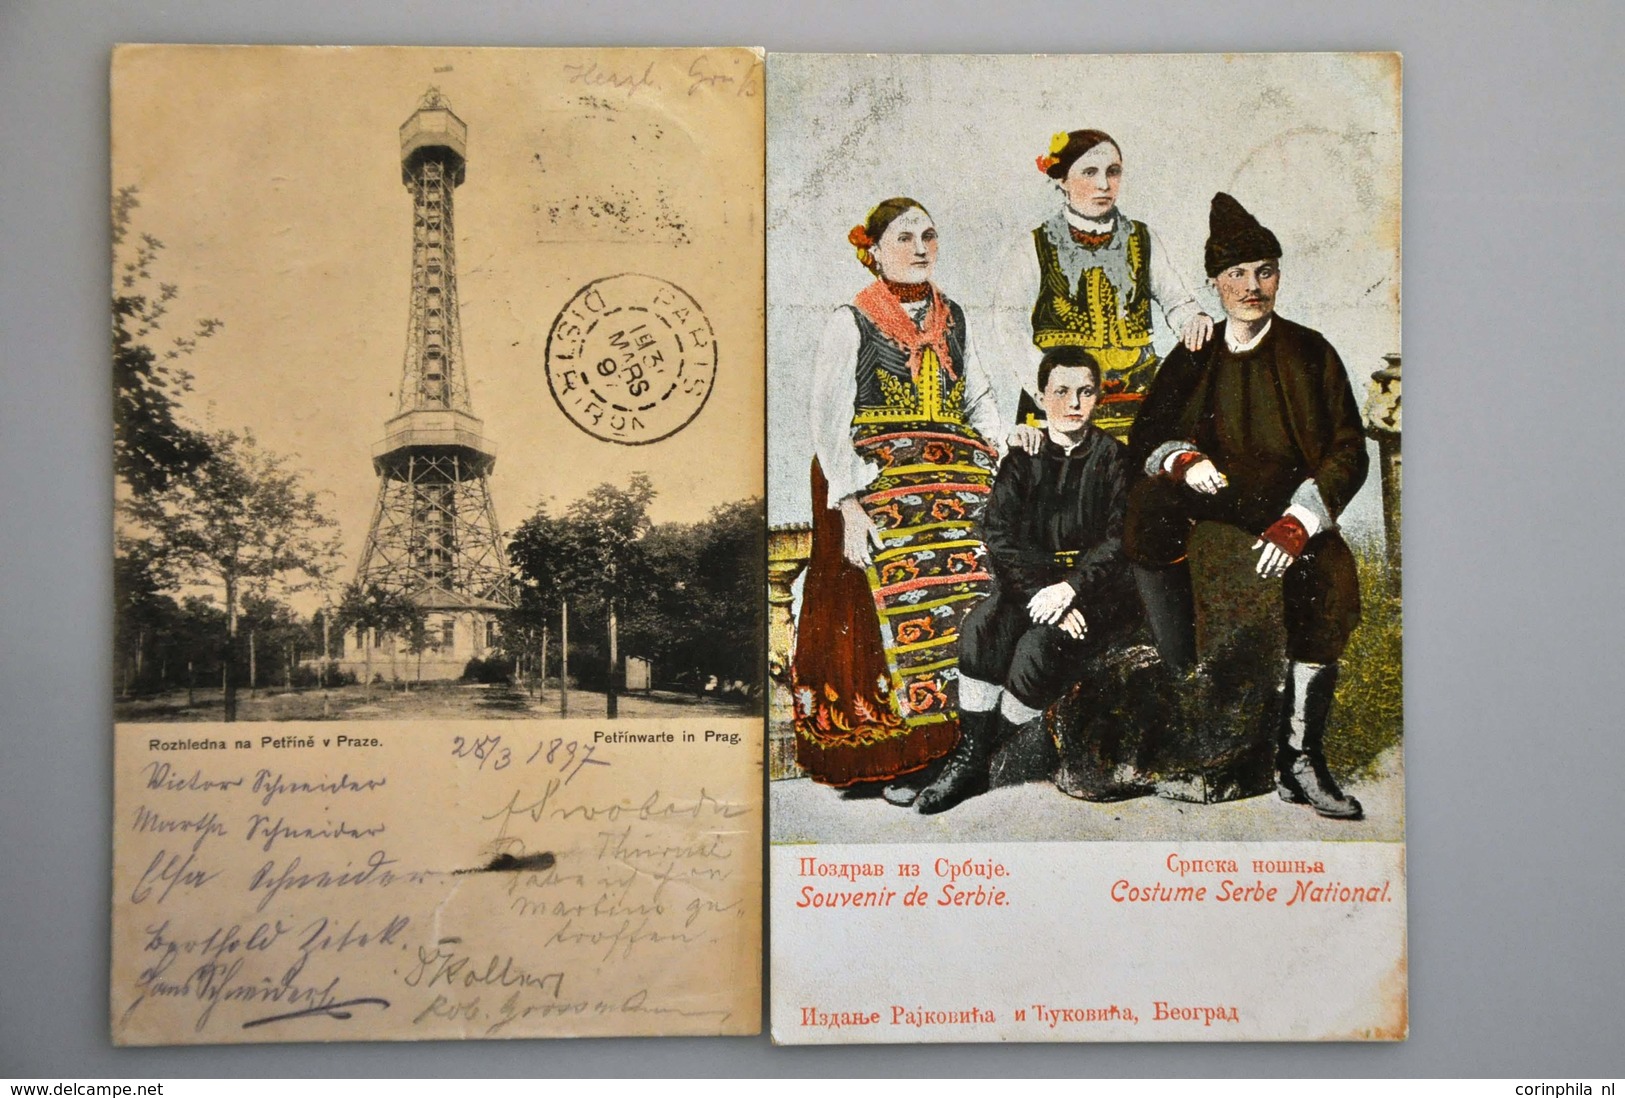 Herzl. Gruß
PARIS
DISTRIBON
31
MARS
97
Rozhledna na Petříně v Praze.
Petřínwarte in Prag.
28/3 1897
Victor Schneider
Martha Schneider
Elsa Schneider.
Berthold Zitek.
Hans Schneider
Swoboda
habe ich
Martino ge-
troffen.
Koller
Rob.
Поздрав из Србије.
Souvenir de Serbie.
Српска ношња
Costume Serbe National.
Издање Рајковића и Ћуковића, Београд
corinphila nl